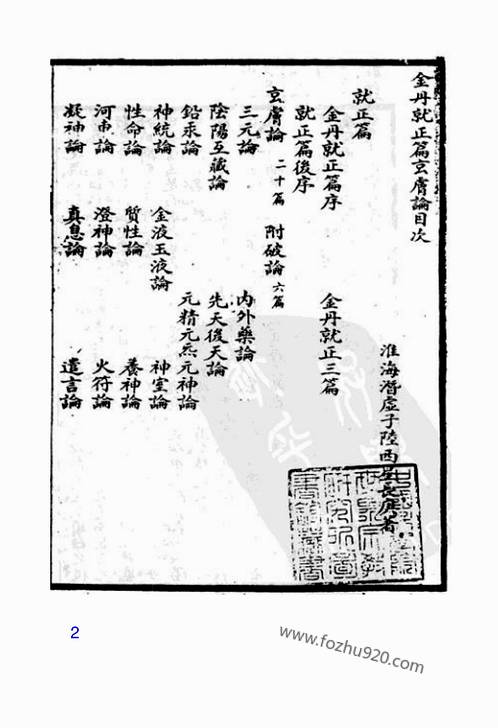 金丹就正篇玄膚論目次
淮海潛虛子陸西星長庚著
就正篇
金丹就正篇序 金丹就正三篇
就正篇後序
玄膚論 二十篇 附破論 六篇
三元論 內外藥論
陰陽互藏論 先天後天論
鉛汞論 元精元炁元神論
神統論 金液玉液論 神室論
性命論 質性論 養神論
河車論 澄神論 火符論
凝神論 真息論 遺言論
2
www.fozhu920.com